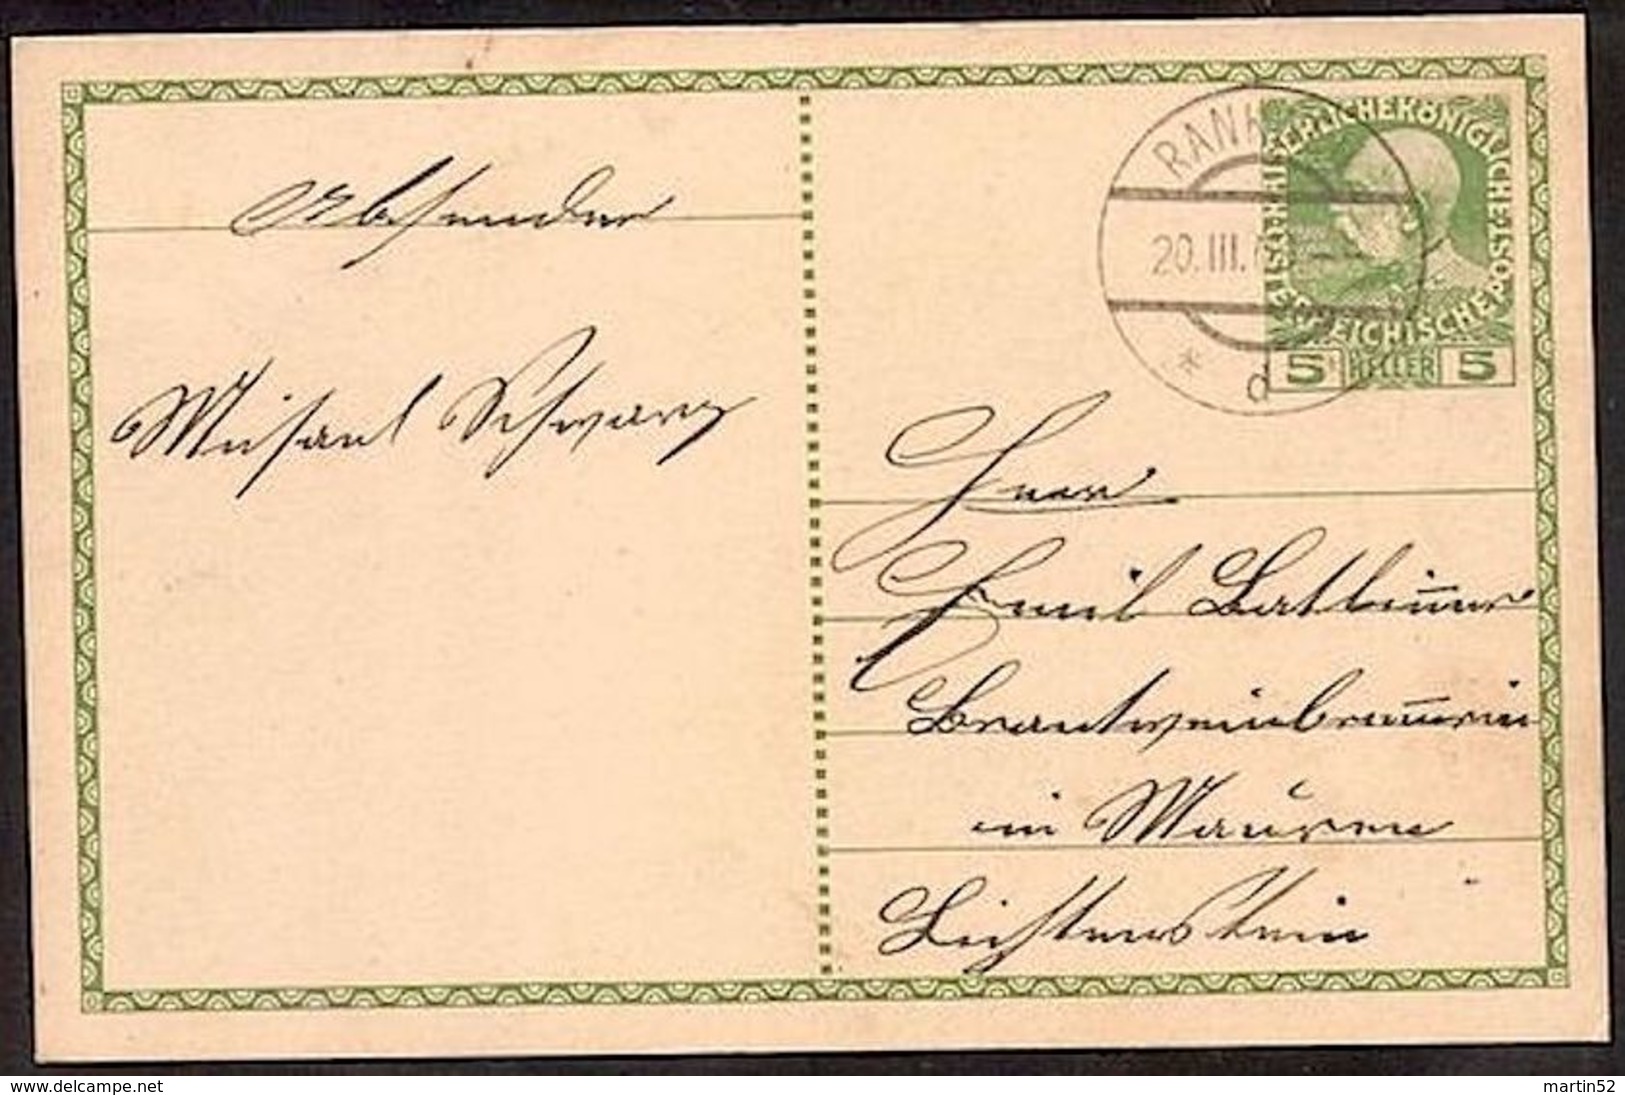 Absender
Michael Schwarz
RANK
20.III.
d
KAISERLICHEKÖNIGLICHE
ÖSTERREICHISCHEPOST
5 HELLER 5
Herr
Emil
Brantweinbrennerei
in Mauren
Lichtenstein
www.delcampe.net
martin52